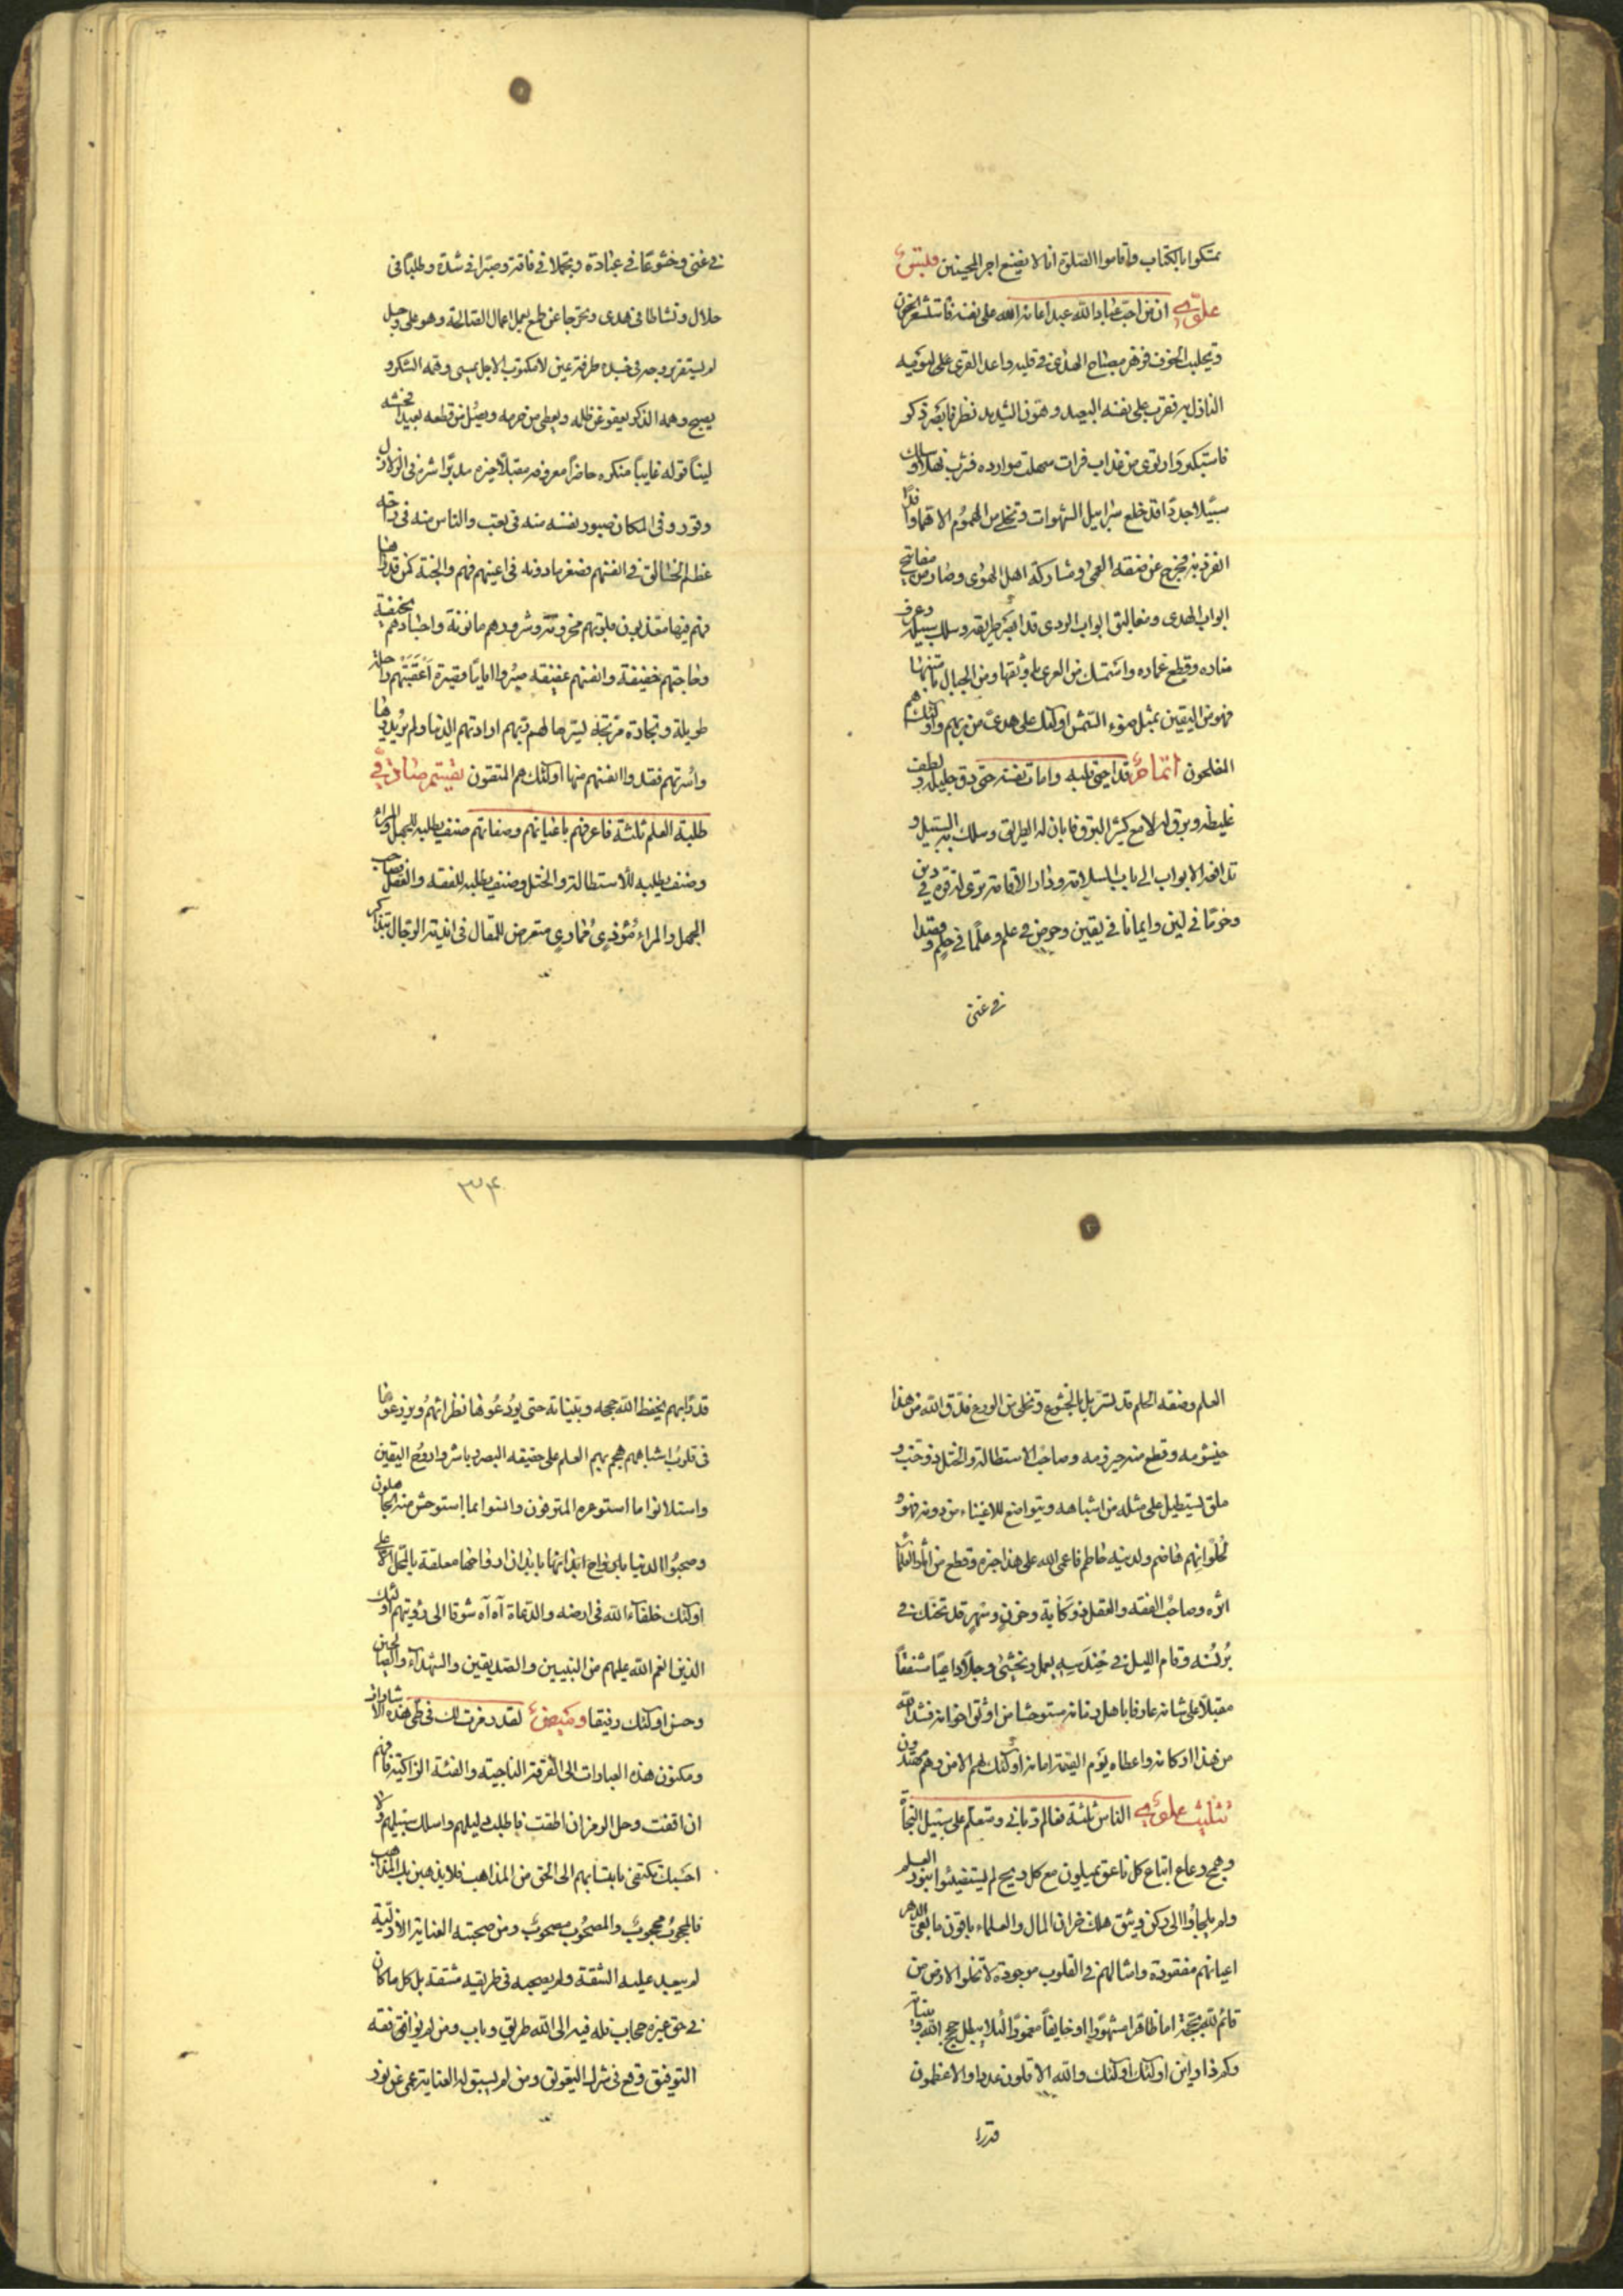 يمسكون بالكتاب واقاموا الصلوة انا لا نضيع اجر المحسنين قلبس
علوى ان من احب عباد الله عبدا اعانه الله على نفسه فاستشعر الحزن
وتجلبب الخوف فزهر مصباح الهدى فى قلبه واعد القرى على ليومه
النازل به فقرب على نفسه البعيد وهون الشديد نظر فابصر ذكر
فاستكبر وارتوى من عذاب فرات سهلت موارده فشرب نهلا وسلك
سبيلا جددا قد خلع سرابيل الشهوات وتخلى من الهموم الا هما واحدا
انفرد به فخرج عن صفة العمى ومشاركة اهل الهوى وصار من مفاتيح
ابواب الهدى ومغاليق ابواب الردى قد ابصر طريقه وسلك سبيله وعرف
مناره وقطع غماره واستمسك من العرى باوثقها ومن الجبال بامتنها
فهو من اليقين بمثل ضوء الشمس اولئك على هدى من ربهم واولئك هم
المفلحون قد احيى قلبه وامات نفسه حتى دق جليله ولطف
غليظه وبرق له لامع كثير البرق فابان له الطريق وسلك به السبيل و
تدافعته الابواب الى باب السلامة ودار الاقامة ترى له قوة فى دين
وحزما فى لين وايمانا فى يقين وحرص فى علم وعلما فى حلم وقصدا
فى غنى
فى غنى وخشوعا فى عبادة وتجملا فى فاقة وصبرا فى شدة وطلبا فى
حلال ونشاطا فى هدى وتحرجا عن طمع يعمل اعمال الصالحة وهو على وجل
لم يستقر روحه فى جسده طرفة عين لا مكتوب الاجل يمسى وهمه الشكر و
يصبح وهمه الذكر يعفو عن ظلمه ويعطى من حرمه ويصل من قطعه بعيدا فحشه
لينا قوله غايبا منكره حاضرا معروفه مقبلا خيره مدبرا شره فى الزلازل
وقور وفى المكاره صبور نفسه منه فى تعب والناس منه فى راحة
عظم الخالق فى انفسهم فصغر ما دونه فى اعينهم فهم والجنة كمن قد راها
فهم فيها منعمون قلوبهم محزونة وشرورهم مامونة واجسادهم نحيفة
وحاجاتهم خفيفة وانفسهم عفيفة صبروا اياما قصيرة اعقبتهم راحة
طويلة وتجارة مربحة يسرها لهم ربهم ارادتهم الدنيا ولم يريدوها
واسرتهم ففدوا انفسهم منها اولئك هم المتقون
طلبة العلم ثلثة فاعرفهم باعيانهم وصفاتهم صنف يطلبه للجهل والمراء
وصنف يطلبه للاستطالة والختل وصنف يطلبه للفقه والعقل فصاحب
الجهل والمراء موذى ممارى متعرض للمقال فى اندية الرجال بتذاكر
العلم وصفة الحلم قد تسربل بالخشوع وتخلى من الورع فدق الله من هذا
خيشومه وقطع منه حيزومه وصاحب الاستطالة والختل ذو خب و
ملق يستطيل على مثله من اشباهه ويتواضع للاغنياء من دونه فهو
لحلوانهم هاضم ولدينه حاطم فاعمى الله على هذا خبره وقطع من اثار العلماء
اثره وصاحب الفقه والعقل ذو كابة وحزن وسهر قد تحنك فى
برنسه وقام الليل فى حندسه يعمل ويخشى وجلا داعيا مشفقا
مقبلا على شانه عارفا باهل زمانه مستوحشا من اوثق اخوانه فشد الله
من هذا اركانه واعطاه يوم القيمة امانه اولئك لهم الامن وهم مهتدون
تثليث علوى الناس ثلثة فعالم ربانى ومتعلم على سبيل النجاة
وهمج رعاع اتباع كل ناعق يميلون مع كل ريح لم يستضيئوا بنور العلم
ولم يلجأوا الى ركن وثيق هلك خزان المال والعلماء باقون ما بقى الدهر
اعيانهم مفقودة وامثالهم فى القلوب موجودة لا تخلو الارض من
قائم لله بحجة اما ظاهرا مشهورا او خايفا مغمورا لئلا يبطل حجج الله وبيناته
وكم ذا واين اولئك اولئك والله الاقلون عددا والاعظمون
قدرا
قدرا بهم يحفظ الله حججه وبيناته حتى يودعوها نظرائهم ويزرعوها
فى قلوب اشباههم هجم بهم العلم على حقيقة البصيرة وباشروا روح اليقين
واستلانوا ما استوعره المترفون وانسوا بما استوحش منه الجاهلون
وصحبوا الدنيا بابدان ارواحها معلقة بالمحل الاعلى
اولئك خلفاء الله فى ارضه والدعاة آه آه شوقا الى رؤيتهم اولئك
الذين انعم الله عليهم من النبيين والصديقين والشهداء والصالحين
وحسن اولئك رفيقا وميض لقد رمزت لك فى طى هذه الاشارات
ومكنون هذه العبارات الى الفرقة الناجية والفئة الزاكية فافهم
ان اقفت وحل الرمز ان اطقت فاطلب دليلهم واسلك سبيلهم ولا
احسبك تكتفى بانتسابهم الى الحق من المذاهب فلا يذهبن بك المذاهب
فالمحجوب محجوب والمصحوب مصحوب ومن صحبته العناية الازلية
لم يبعد عليه الشقة ولم يصحبه فى طريقه مشقة بل كل ما كان
فى حق غيره حجاب فله فيه الى الله طريق وباب ومن لم يوافق فقه
التوفيق وقع فى شرك التعويق ومن لم يسبق له العناية عمى عن نور
٣٠۴